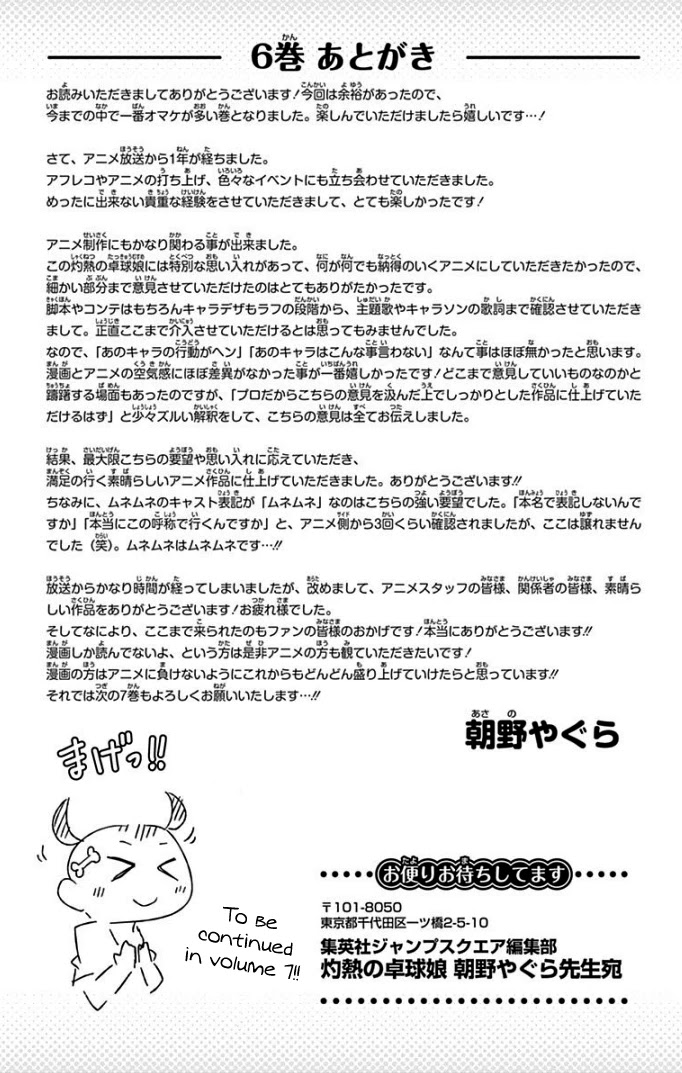 6巻 あとがき
お読みいただきましてありがとうございます!今回は余裕があったので、
今までの中で一番オマケが多い巻となりました。楽しんでいただけましたら嬉しいです…!
さて、アニメ放送から1年が経ちました。
アフレコやアニメの打ち上げ、色々なイベントにも立ち会わせていただきました。
めったに出来ない貴重な経験をさせていただきまして、とても楽しかったです!
アニメ制作にもかなり関わる事が出来ました。
この灼熱の卓球娘には特別な思い入れがあって、何が何でも納得のいくアニメにしていただきたかったので、
細かい部分まで意見させていただけたのはとてもありがたかったです。
脚本やコンテはもちろんキャラデザもラフの段階から、主題歌やキャラソンの歌詞まで確認させていただき
まして。正直ここまで介入させていただけるとは思ってもみませんでした。
なので、「あのキャラの行動がヘン」「あのキャラはこんな事言わない」なんて事はほぼ無かったと思います。
漫画とアニメの空気感にほぼ差異がなかった事が一番嬉しかったです!どこまで意見していいものなのかと
躊躇する場面もあったのですが、「プロだからこちらの意見を汲んだ上でしっかりとした作品に仕上げていた
だけるはず」と少々ズルい解釈をして、こちらの意見は全てお伝えしました。
結果、最大限こちらの要望や思い入れに応えていただき、
満足の行く素晴らしいアニメ作品に仕上げていただきました。ありがとうございます!!
ちなみに、ムネムネのキャスト表記が「ムネムネ」なのはこちらの強い要望でした。「本名で表記しないんで
すか」「本当にこの呼称で行くんですか」と、アニメ側から3回くらい確認されましたが、ここは譲れません
でした(笑)。ムネムネはムネムネです…!!
放送からかなり時間が経ってしまいましたが、改めまして、アニメスタッフの皆様、関係者の皆様、素晴ら
しい作品をありがとうございます!お疲れ様でした。
そしてなにより、ここまで来られたのもファンの皆様のおかげです!本当にありがとうございます!!
漫画しか読んでないよ、という方は是非アニメの方も観ていただきたいです!
漫画の方はアニメに負けないようにこれからもどんどん盛り上げていけたらと思っています!!
それでは次の7巻もよろしくお願いいたします…!!
朝野やぐら
まげっ!!
To be
continued
in volume 7!!
お便りお待ちしてます
〒101-8050
東京都千代田区一ツ橋2-5-10
集英社ジャンプスクエア編集部
灼熱の卓球娘 朝野やぐら先生宛